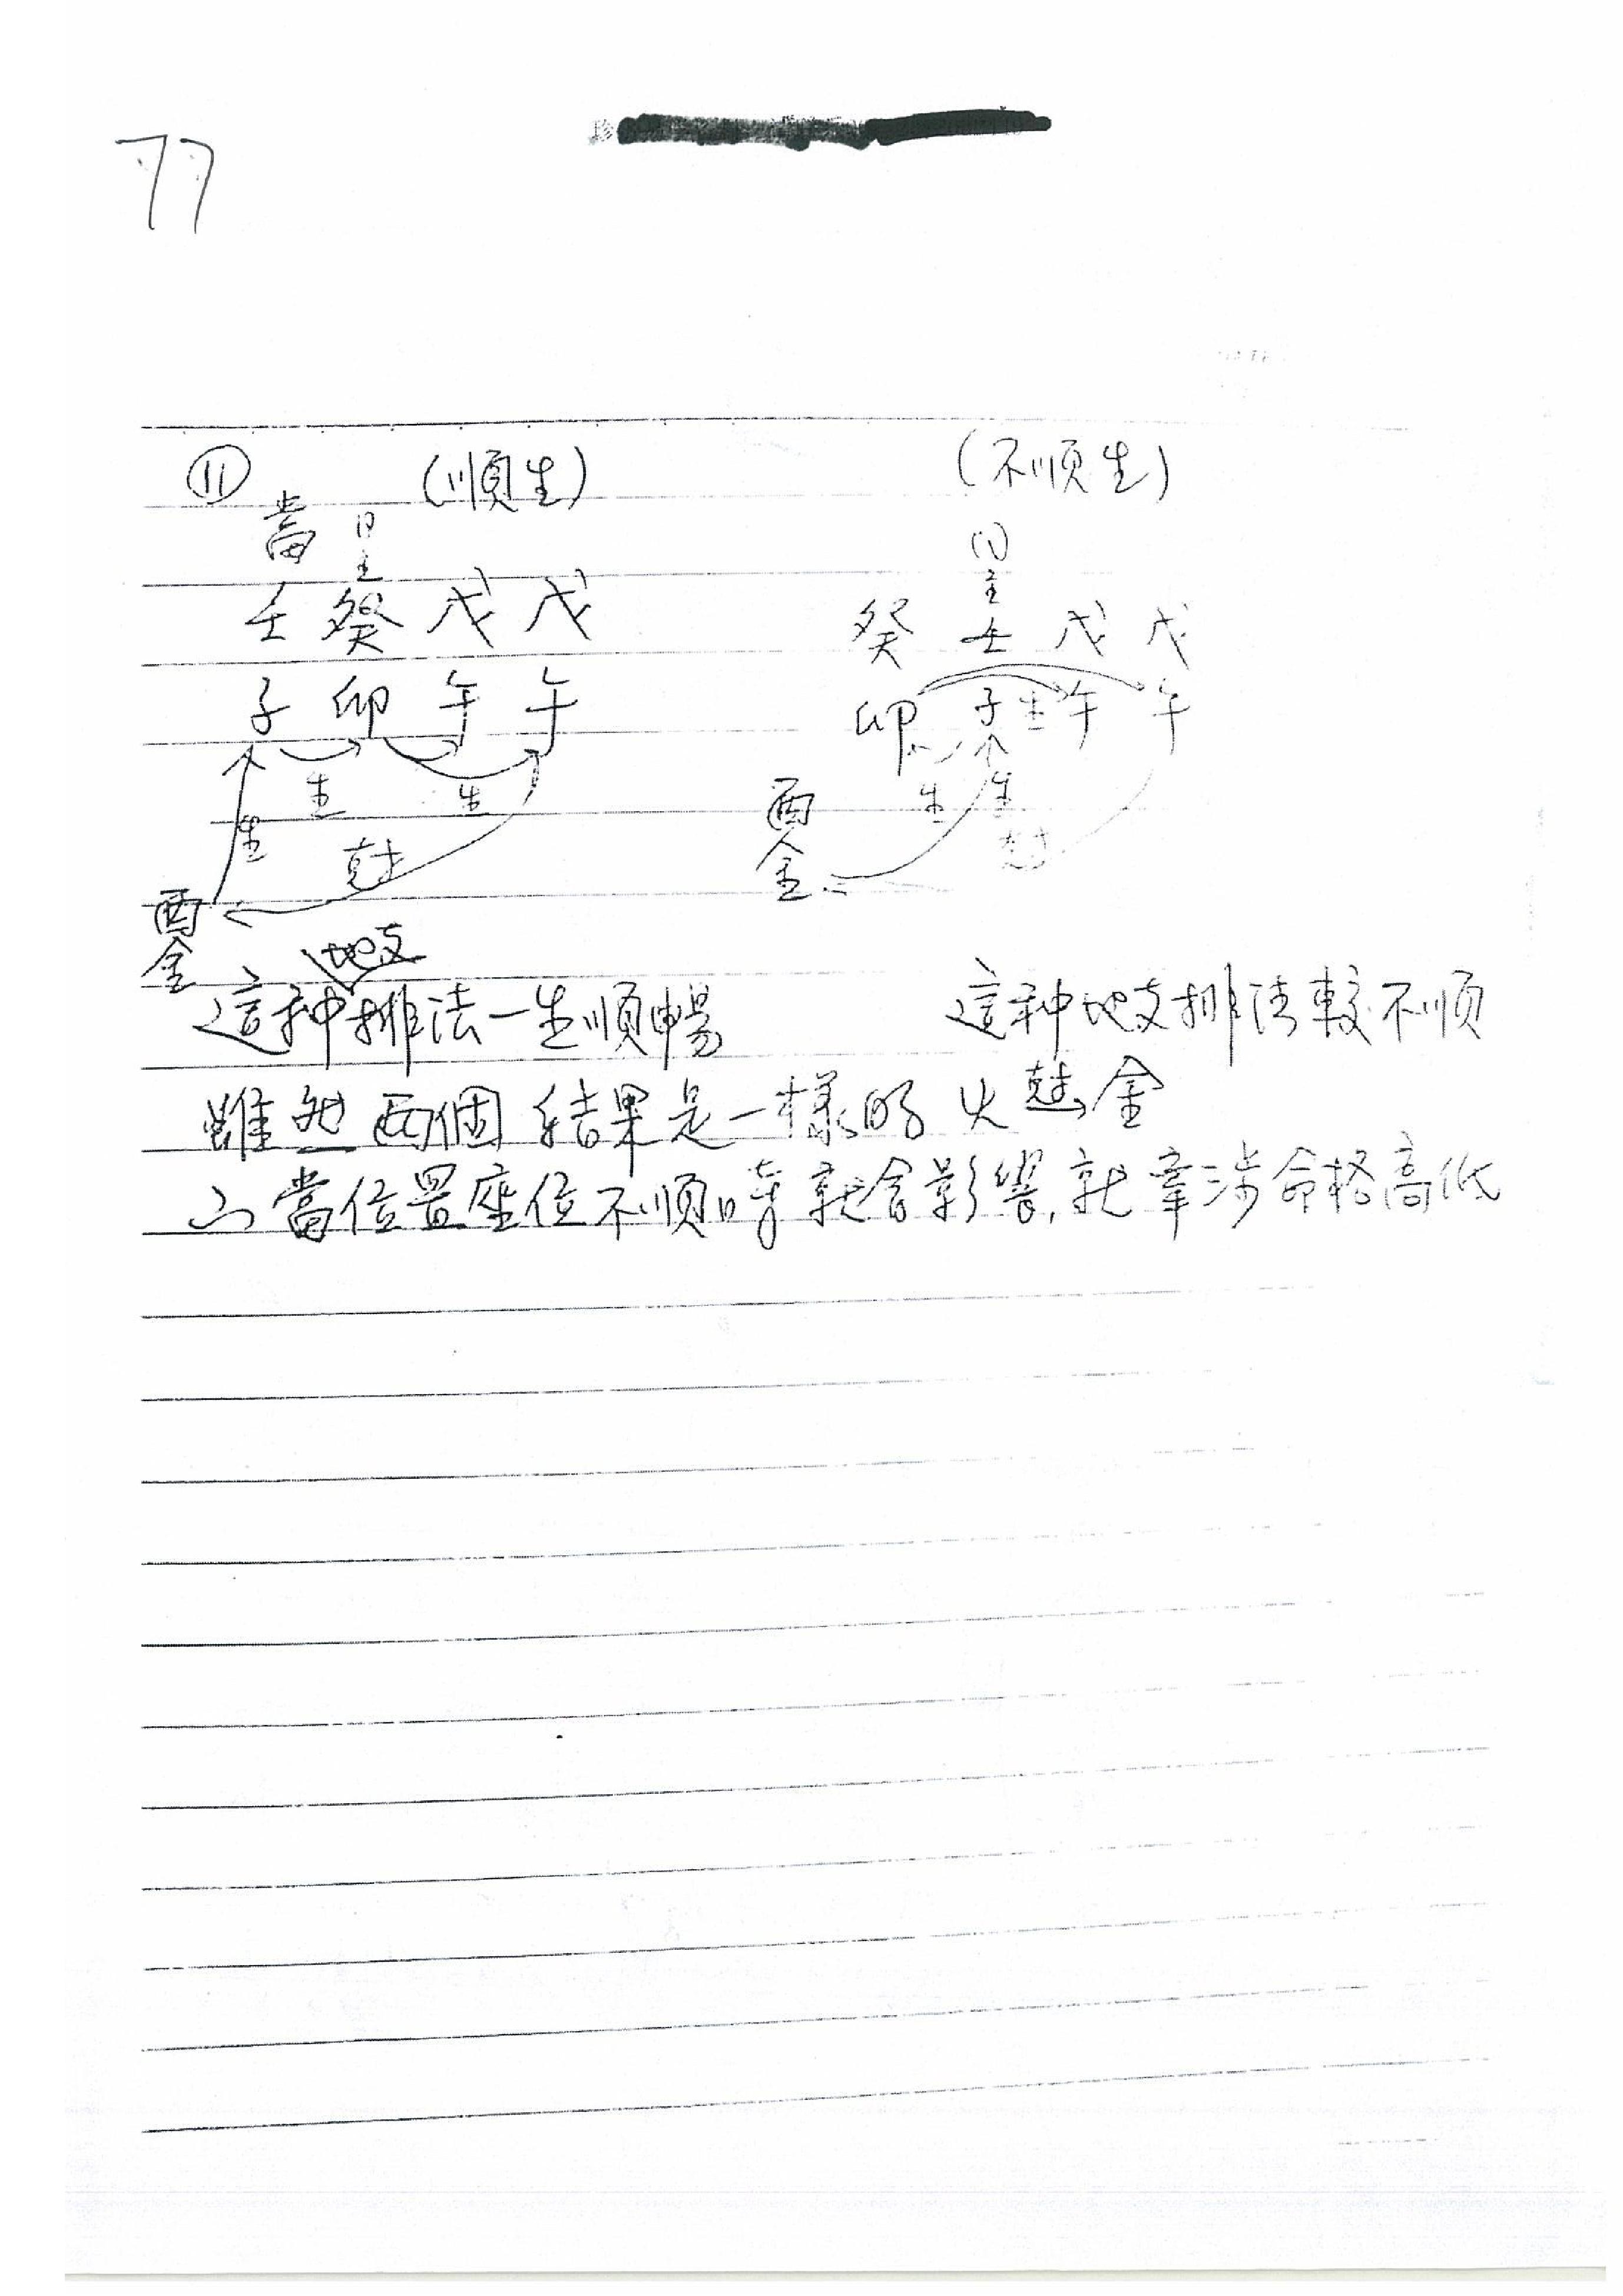 77
⑪ (順生) (不順生)
當 日主 日主
壬 癸 戊 戊 癸 壬 戊 戊
子 卯 午 午 卯 子 生 午 午
生 生 生 生
生 剋 剋
酉金 酉金
地支
這种排法一生順暢 這种地支排法較不順
雖然兩個結果是一樣的 火剋金
當位置座位不順時就會影響,就牽涉命格高低